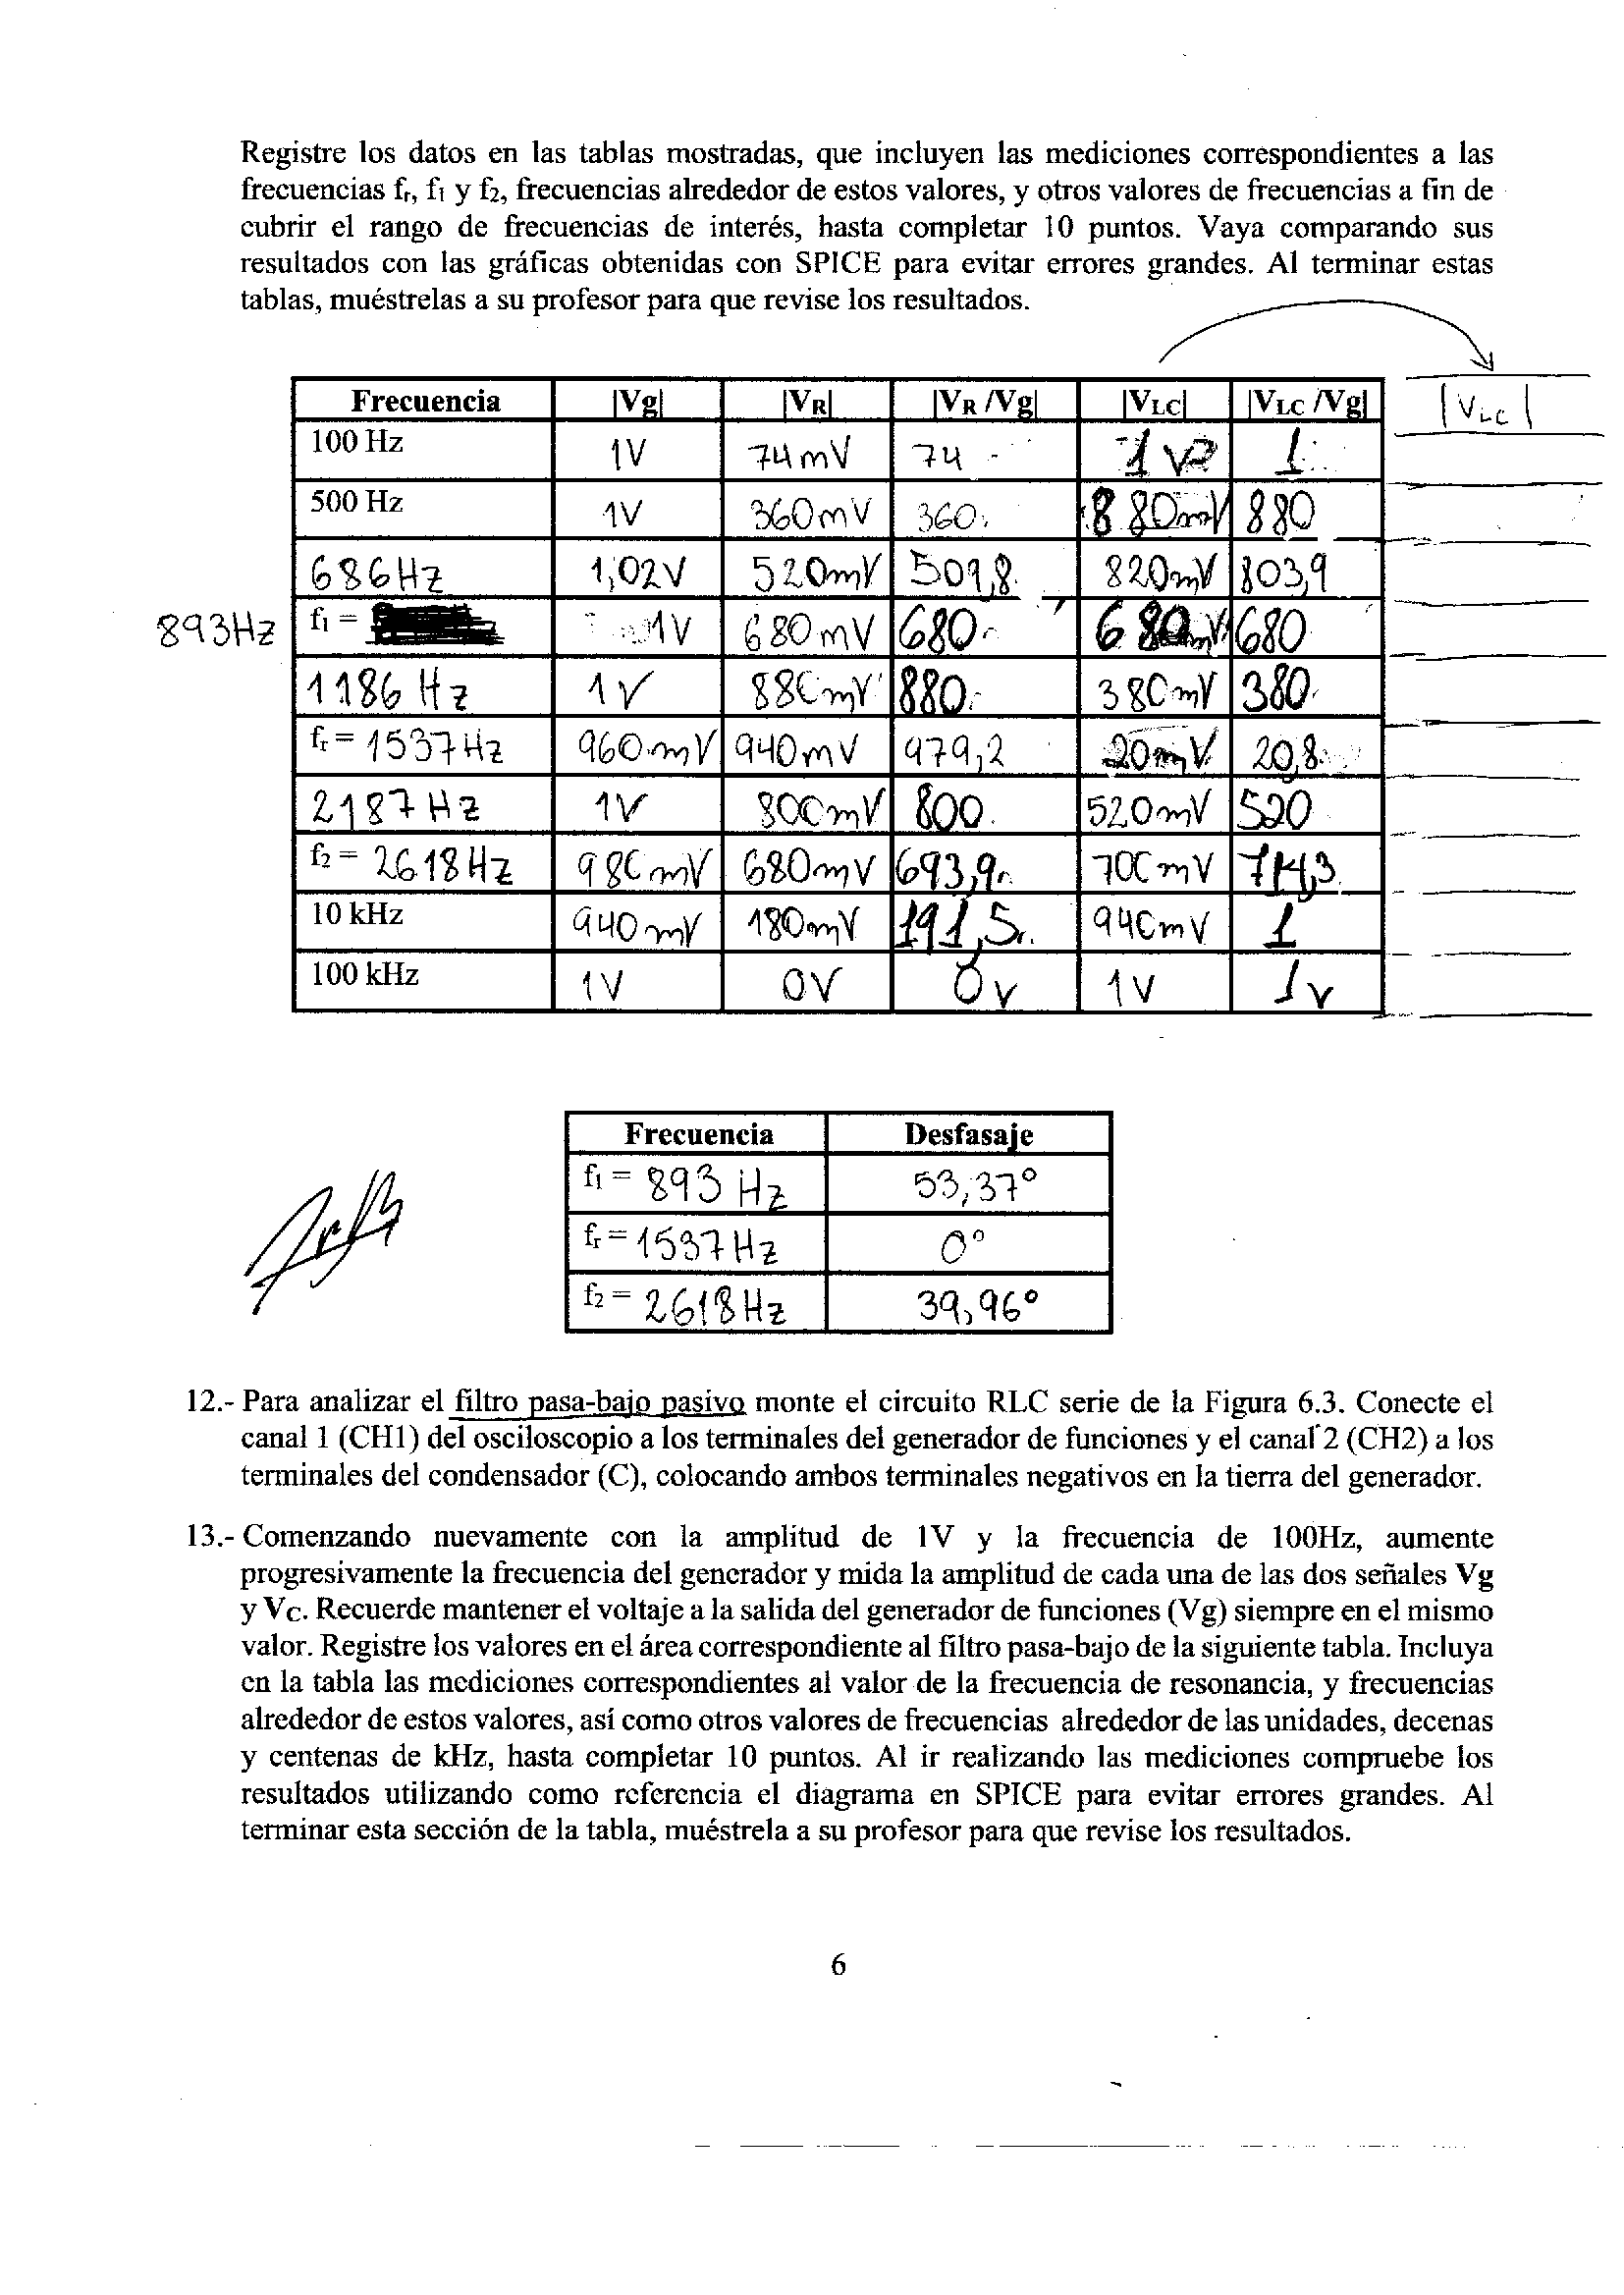 Registre los datos en las tablas mostradas, que incluyen las mediciones correspondientes a las
frecuencias fr, f1 y f2, frecuencias alrededor de estos valores, y otros valores de frecuencias a fin de
cubrir el rango de frecuencias de interés, hasta completar 10 puntos. Vaya comparando sus
resultados con las gráficas obtenidas con SPICE para evitar errores grandes. Al terminar estas
tablas, muéstrelas a su profesor para que revise los resultados.
Frecuencia |Vg| |VR| |VR /Vg| |VLC| |VLC /Vg| |VLC|
100 Hz 1V 74mV 74 1V 1
500 Hz 1V 360mV 360 880mV 880
686Hz 1,02V 520mV 509,8 820mV 803,9
893Hz f1 = 1V 680mV 680 680mV 680
1186 Hz 1V 880mV 880 380mV 380
fr = 1537Hz 960mV 940mV 979,2 20mV 20,8
2187Hz 1V 800mV 800 520mV 520
f2 = 2618Hz 980mV 680mV 693,9 700mV 714,3
10 kHz 940mV 180mV 191,5 940mV 1
100 kHz 1V 0V 0v 1V 1v
Frecuencia Desfasaje
f1 = 893 Hz 53,37°
fr = 1537Hz 0°
f2 = 2618Hz 39,96°
12.- Para analizar el filtro pasa-bajo pasivo monte el circuito RLC serie de la Figura 6.3. Conecte el
canal 1 (CH1) del osciloscopio a los terminales del generador de funciones y el canal 2 (CH2) a los
terminales del condensador (C), colocando ambos terminales negativos en la tierra del generador.
13.- Comenzando nuevamente con la amplitud de 1V y la frecuencia de 100Hz, aumente
progresivamente la frecuencia del generador y mida la amplitud de cada una de las dos señales Vg
y Vc. Recuerde mantener el voltaje a la salida del generador de funciones (Vg) siempre en el mismo
valor. Registre los valores en el área correspondiente al filtro pasa-bajo de la siguiente tabla. Incluya
en la tabla las mediciones correspondientes al valor de la frecuencia de resonancia, y frecuencias
alrededor de estos valores, así como otros valores de frecuencias alrededor de las unidades, decenas
y centenas de kHz, hasta completar 10 puntos. Al ir realizando las mediciones compruebe los
resultados utilizando como referencia el diagrama en SPICE para evitar errores grandes. Al
terminar esta sección de la tabla, muéstrela a su profesor para que revise los resultados.
6